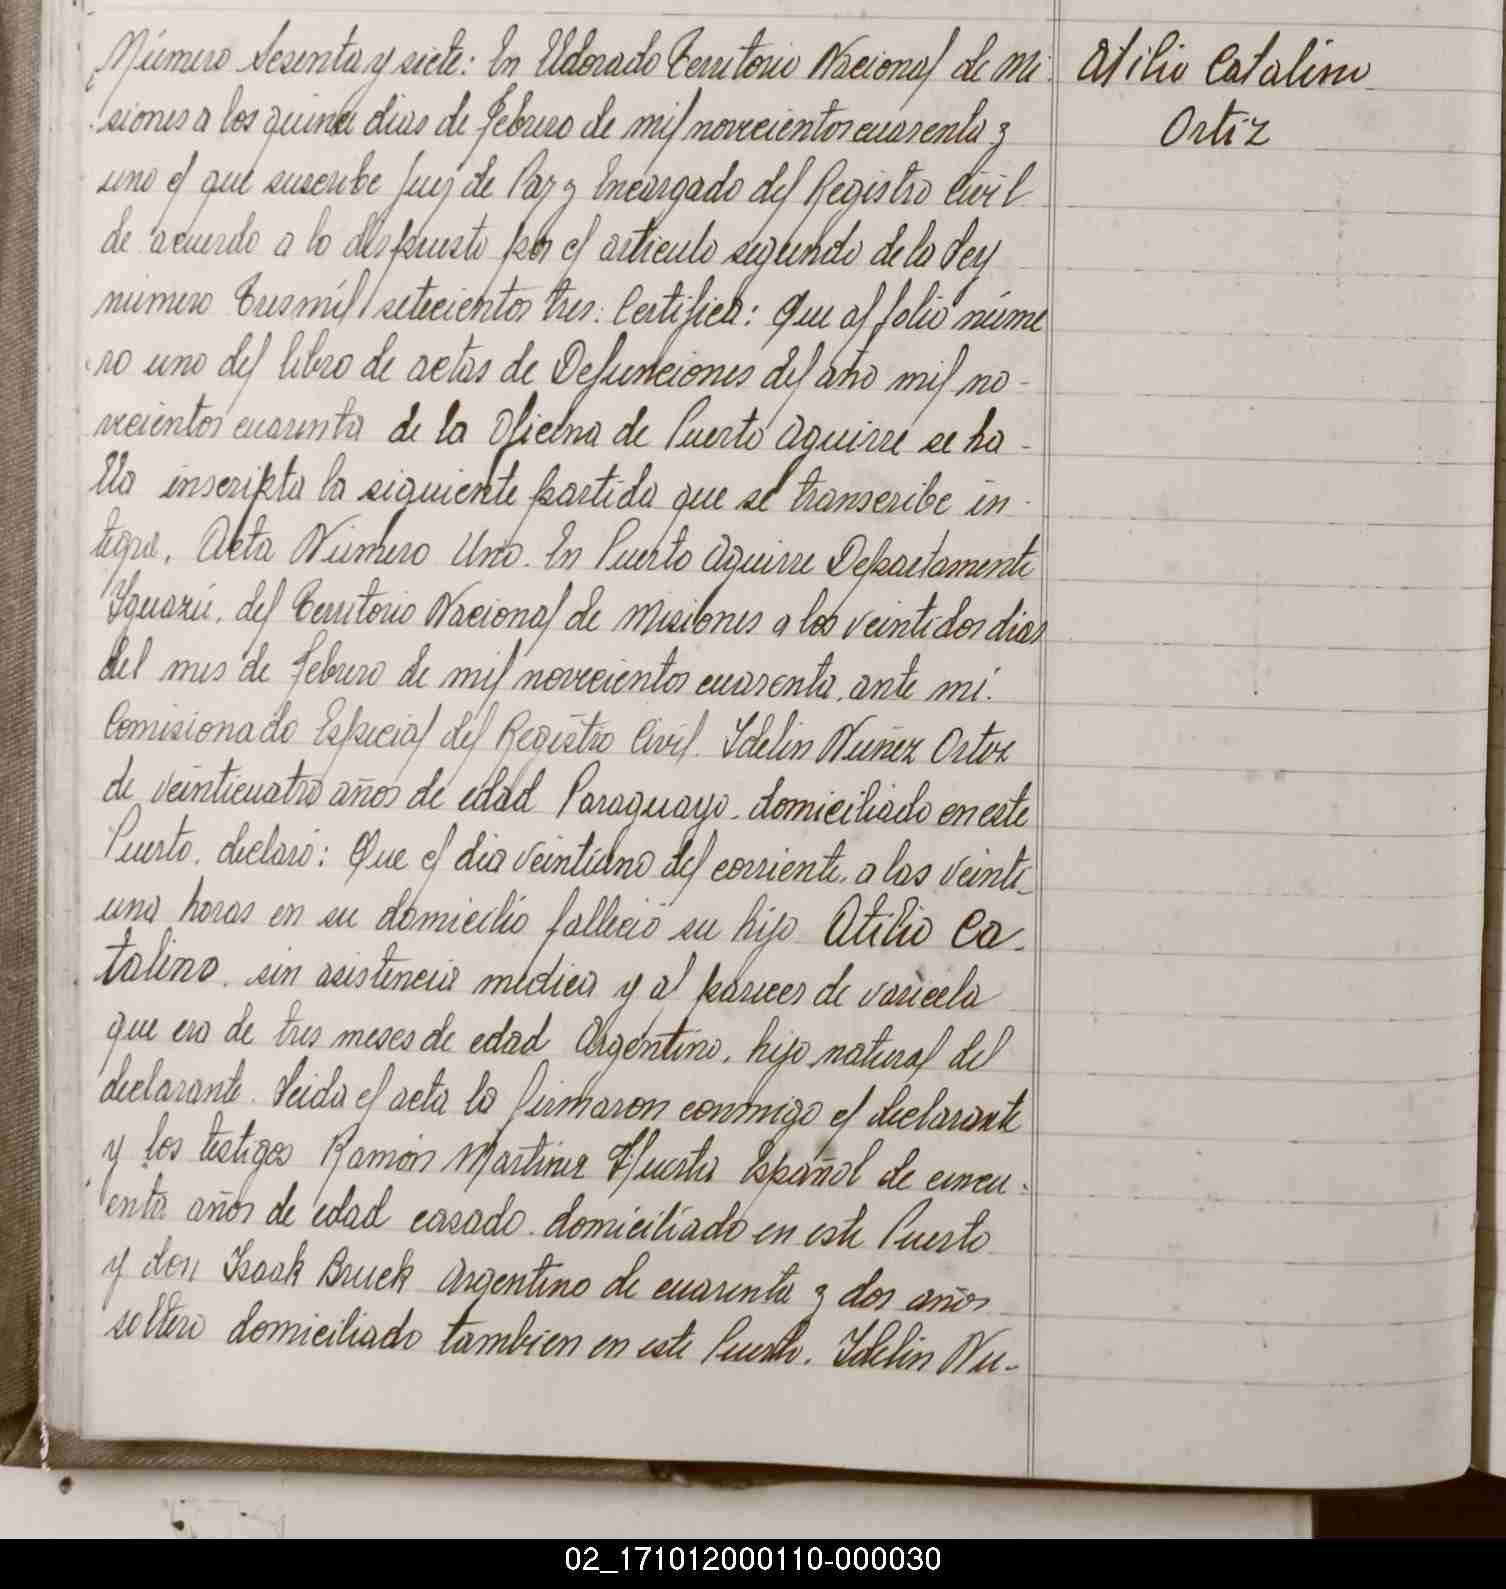 Número Sesenta y siete: En Eldorado Territorio Nacional de Mi
siones a los quince dias de febrero de mil novecientos cuarenta y
uno el que suscribe Juez de Paz y Encargado del Registro Civil
de acuerdo a lo dispuesto por el articulo segundo de la Ley
número Tresmil setecientos tres: Certifica: Que al folio núme
ro uno del libro de actas de Defunciones del año mil no-
vecientos cuarenta de la Oficina de Puerto Aguirre se ha-
lla inscripta la siguiente partida que se transcribe in-
tegra. Acta Número Uno. En Puerto Aguirre Departamento
Iguazú, del Territorio Nacional de Misiones a los veintidos dias
del mes de febrero de mil novecientos cuarenta, ante mi.
Comisionado Especial del Registro Civil. Idelin Nuñez Ortiz
de veinticuatro años de edad Paraguayo, domiciliado en este
Puerto, declaró: Que el dia veintiuno del corriente, a las veinti-
una horas en su domicilio falleció su hijo Atilio Ca-
talino, sin asistencia medica y al parecer de varicela
que era de tres meses de edad Argentino, hijo natural del
declarante. Leida el acta la firmaron conmigo el declarante
y los testigos Ramón Martinez Huerta Español de cincu-
enta años de edad casado, domiciliado en este Puerto
y don Isaak Bruck Argentino de cuarenta y dos años
soltero domiciliado tambien en este Puerto. Idelin Nu-
Atilio Catalino
Ortiz
02_171012000110-000030